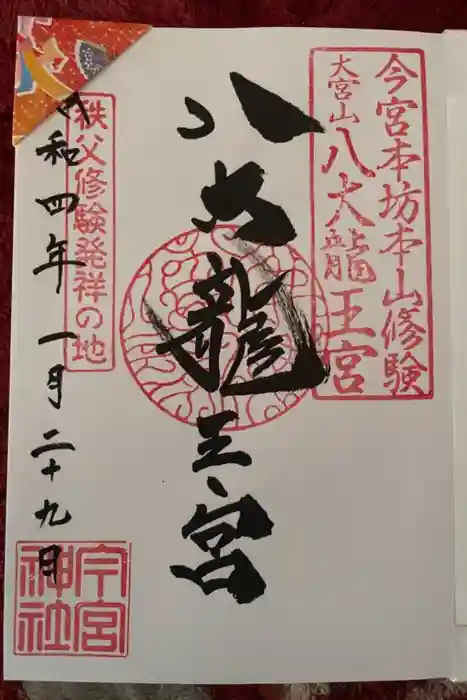 今宮本坊本山修験
大宮山八大龍王宮
八大龍王宮
秩父修験発祥の地
令和四年一月二十九日
今宮神社